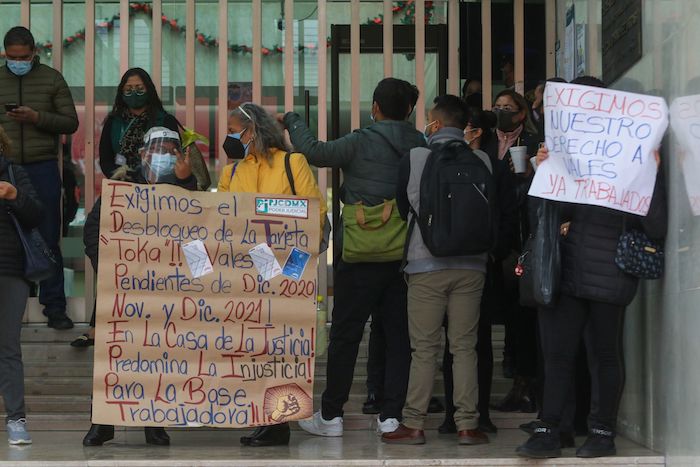 Exigimos el
Desbloqueo de La Tarjeta
"Toka"!! Vales
Pendientes de Dic. 2020
Nov. y Dic. 2021!
En La Casa de La Justicia!
Predomina La Injusticia!
Para La Base
Trabajadora!!
PJCDMX
PODER JUDICIAL
EXIGIMOS
NUESTRO
DERECHO A
VALES
YA TRABAJADOS